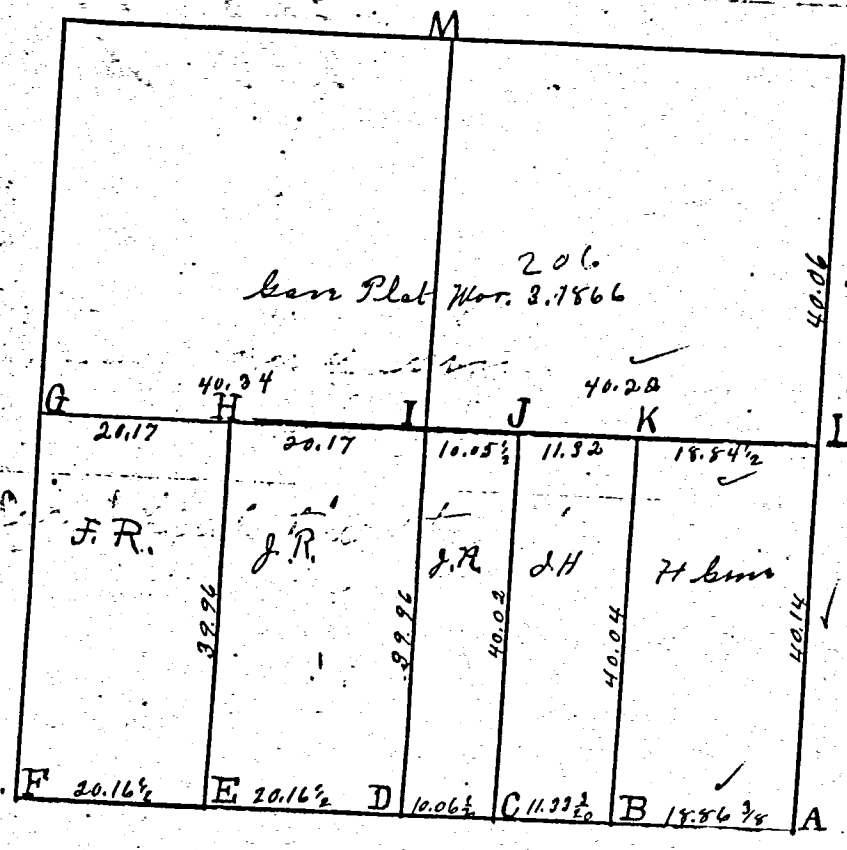 M
206
Plat Mor. 3.1866
40.06
40.34
40.28
G H I J K L
20.17 20.17 10.05½ 11.32 18.84½
F.R. J.R. J.R. J.H
39.96 39.96 40.02 40.04 40.14
F 20.16½ E 20.16½ D 10.06½ C B 18.86 3/8 A